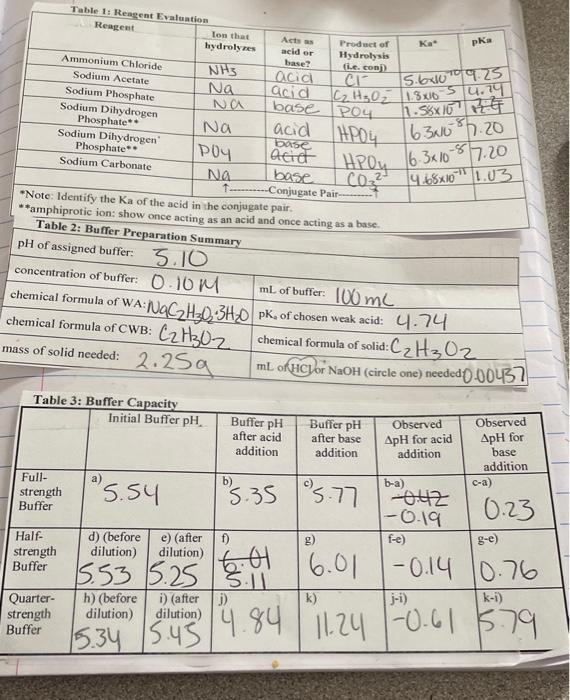 Table 1: Reagent Evaluation
Reagent Ion that hydrolyzes Acts as acid or base? Product of Hydrolysis (i.e. conj) Ka* pKa
Ammonium Chloride NH3 acid Cl- 5.6x10-10 9.25
Sodium Acetate Na acid C2H3O2- 1.8x10-5 4.74
Sodium Phosphate Na base PO4 1.58x10
Sodium Dihydrogen Phosphate** Na acid HPO4 6.3x10-8 7.20
Sodium Dihydrogen Phosphate** PO4 base acid HPO4 6.3x10-8 7.20
Sodium Carbonate Na base CO3 2- 4.68x10-11 1.03
↑----------Conjugate Pair----------↑
*Note: Identify the Ka of the acid in the conjugate pair.
**amphiprotic ion: show once acting as an acid and once acting as a base.
Table 2: Buffer Preparation Summary
pH of assigned buffer: 5.10
concentration of buffer: 0.10M mL of buffer: 100mL
chemical formula of WA: NaC2H3O2·3H2O pKa of chosen weak acid: 4.74
chemical formula of CWB: C2H3O2 chemical formula of solid: C2H3O2
mass of solid needed: 2.25g mL of HCl or NaOH (circle one) needed 0.00437
Table 3: Buffer Capacity
Initial Buffer pH Buffer pH after acid addition Buffer pH after base addition Observed ΔpH for acid addition Observed ΔpH for base addition
Full-strength Buffer a) 5.54 b) 5.35 c) 5.77 b-a) -0.42 -0.19 c-a) 0.23
Half-strength Buffer d) (before dilution) 5.53 e) (after dilution) 5.25 f) 6.01 5.11 g) 6.01 f-e) -0.14 g-e) 0.76
Quarter-strength Buffer h) (before dilution) 5.34 i) (after dilution) 5.45 j) 4.84 k) 11.24 j-i) -0.61 k-i) 5.79